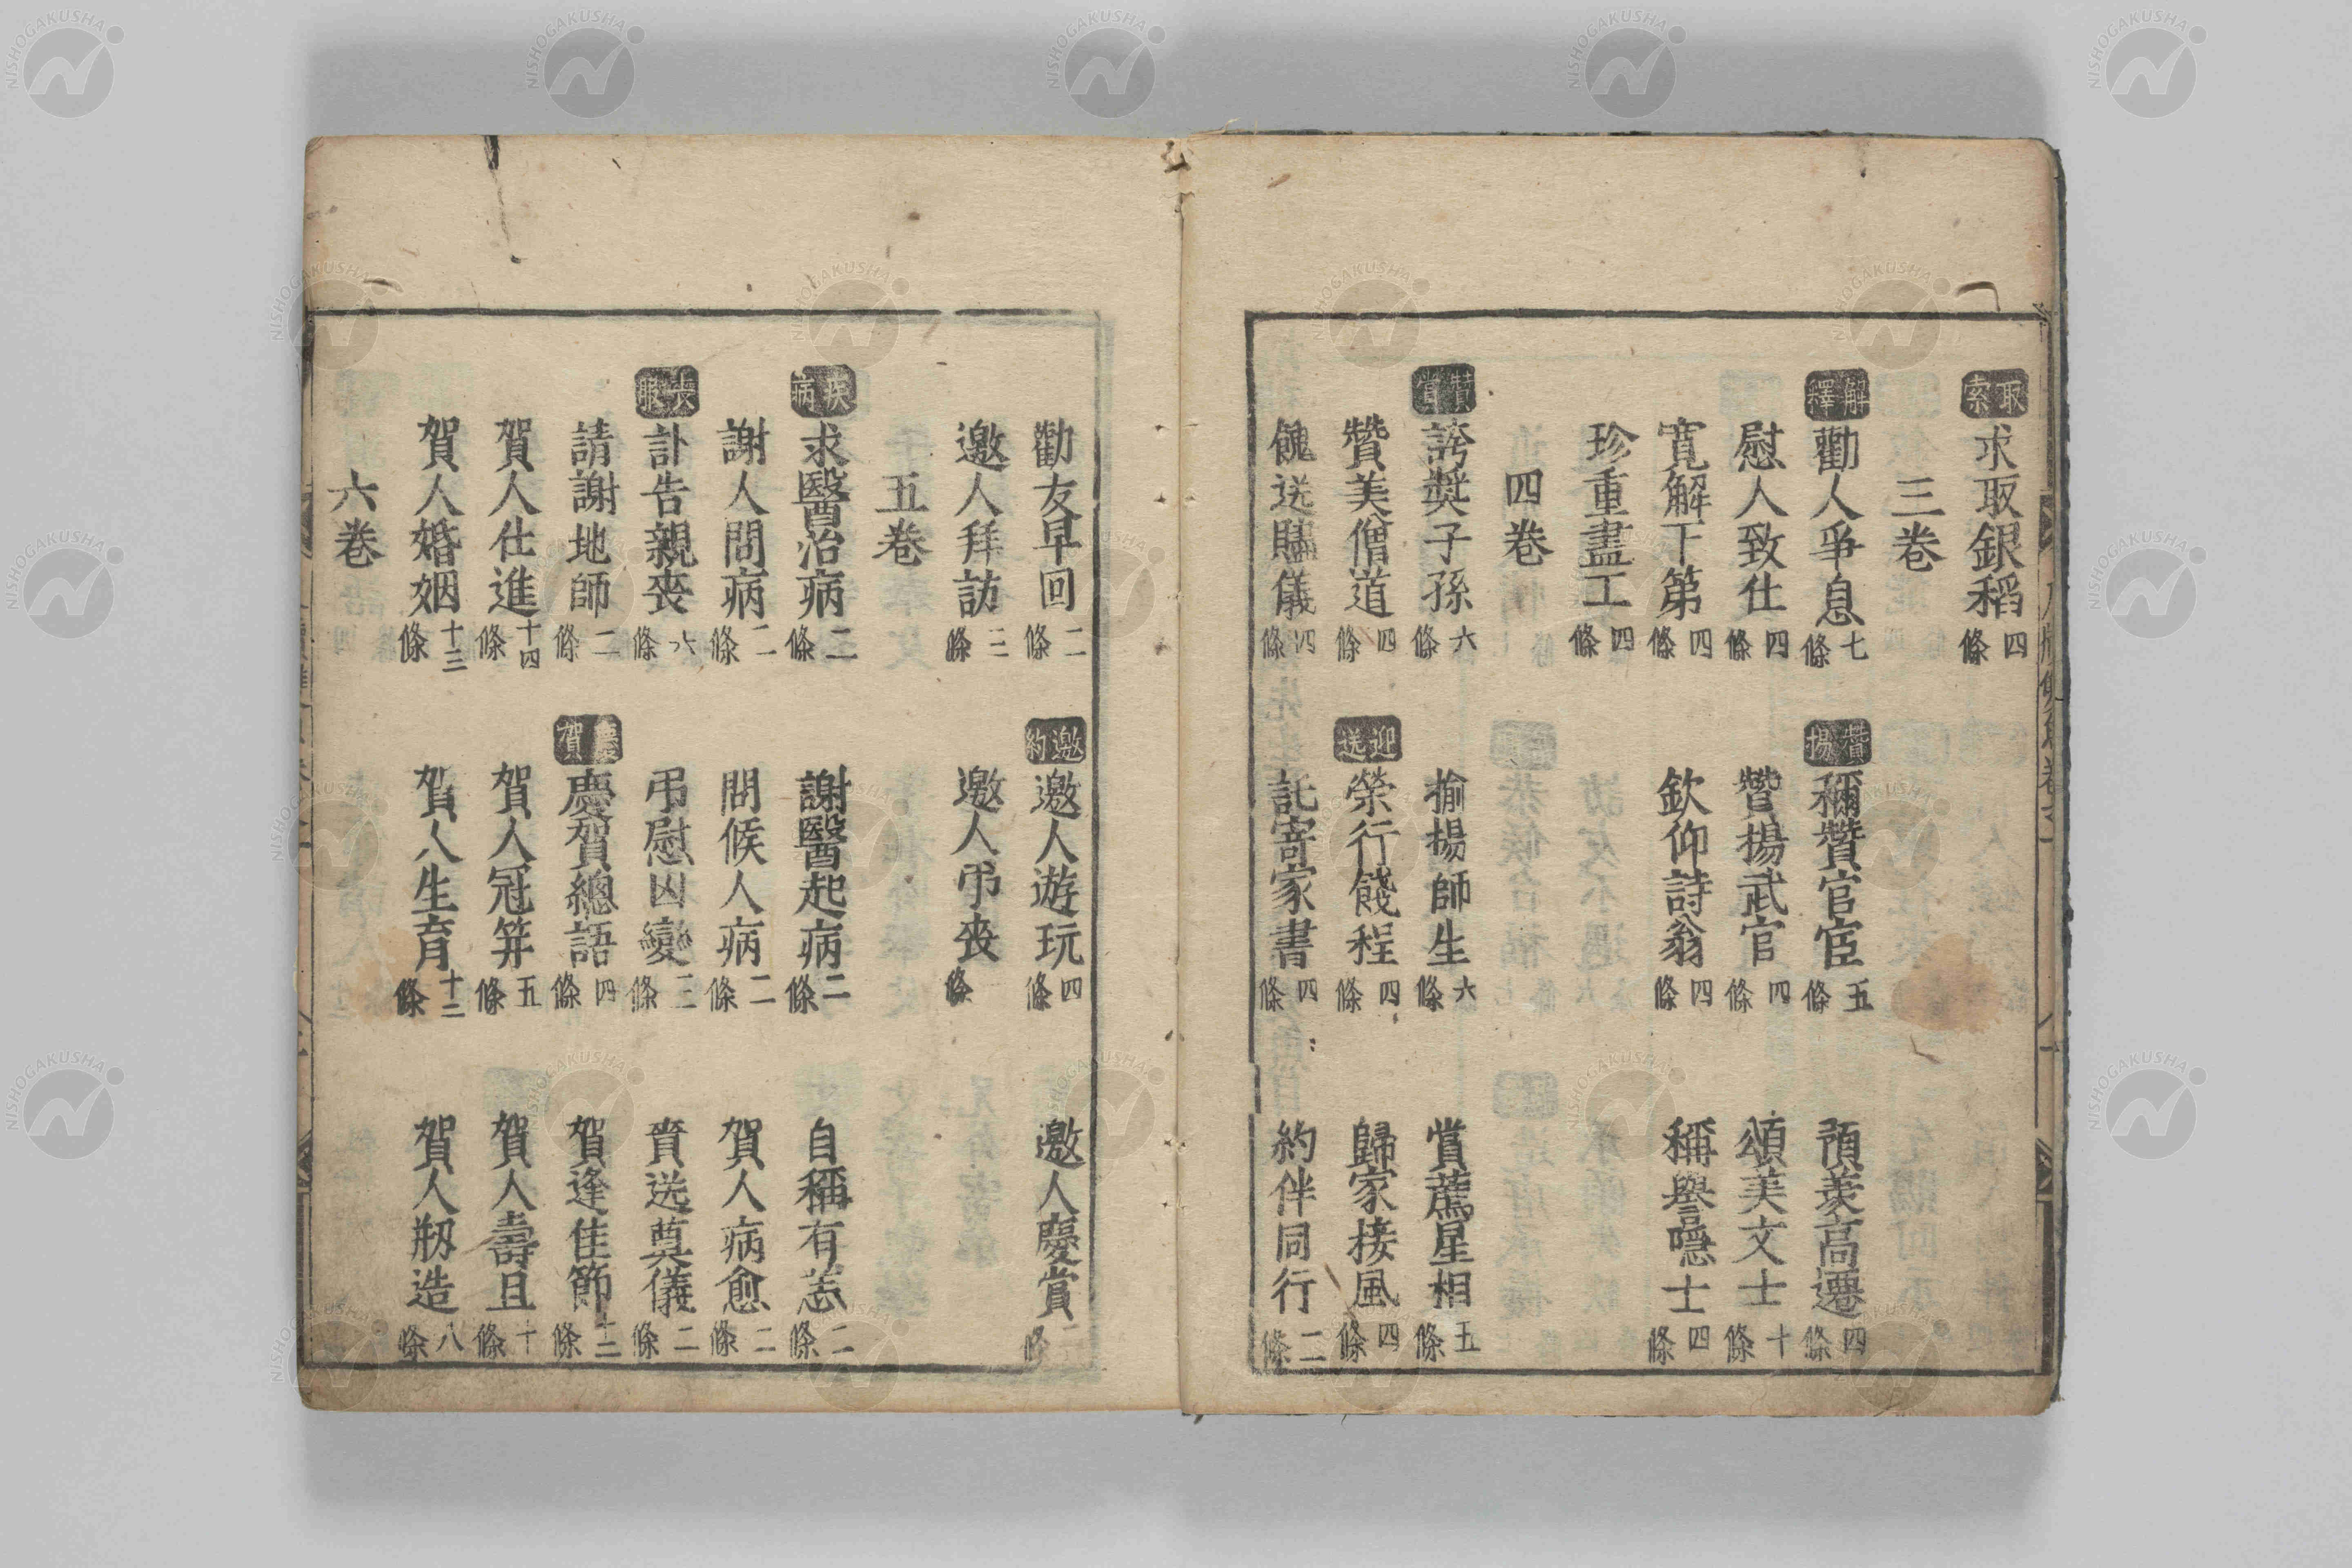 取索 求取銀稻 四條
三卷
解釋 勸人爭息 七條 贊揚 稱贊官宦 五條 預羨高遷 四條
慰人致仕 四條 贊揚武官 四條 頌美文士 十條
寬解下第 四條 欽仰詩翁 四條 稱譽隱士 四條
珍重畫工 四條
四卷
贊賞 誇獎子孫 六條 揄揚師生 六條 賞薦星相 五條
贊美僧道 四條 迎送 榮行餞程 四條 歸家接風 四條
餽送贐儀 四條 託寄家書 四條 約伴同行 二條
勸友早回 二條 邀約 邀人遊玩 四條 邀人慶賞 二條
邀人拜訪 二條 邀人弔喪 條
五卷
疾病 求醫治病 二條 謝醫起病 二條 自稱有恙 二條
謝人問病 二條 問候人病 二條 賀人病愈 二條
喪服 訃告親喪 六條 弔慰凶變 二條 賫送奠儀 二條
請謝地師 二條 慶賀 慶賀總語 四條 賀逢佳節 十二條
賀人仕進 十四條 賀人冠笄 五條 賀人壽旦 十條
賀人婚姻 十三條 賀人生育 十二條 賀人刱造 八條
六卷
NISHOGAKUSHA